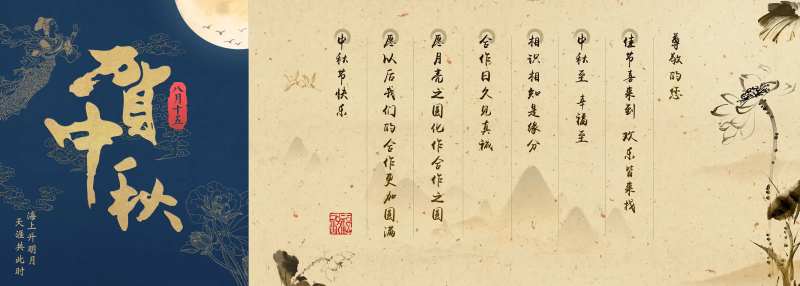 贺中秋
八月十五
海上升明月
天涯共此时
尊敬的您
佳节喜来到 欢乐皆来找
中秋至 幸福至
相识相知是缘分
合作日久见真诚
愿月亮之圆化作合作之圆
愿以后我们的合作更加圆满
中秋节快乐